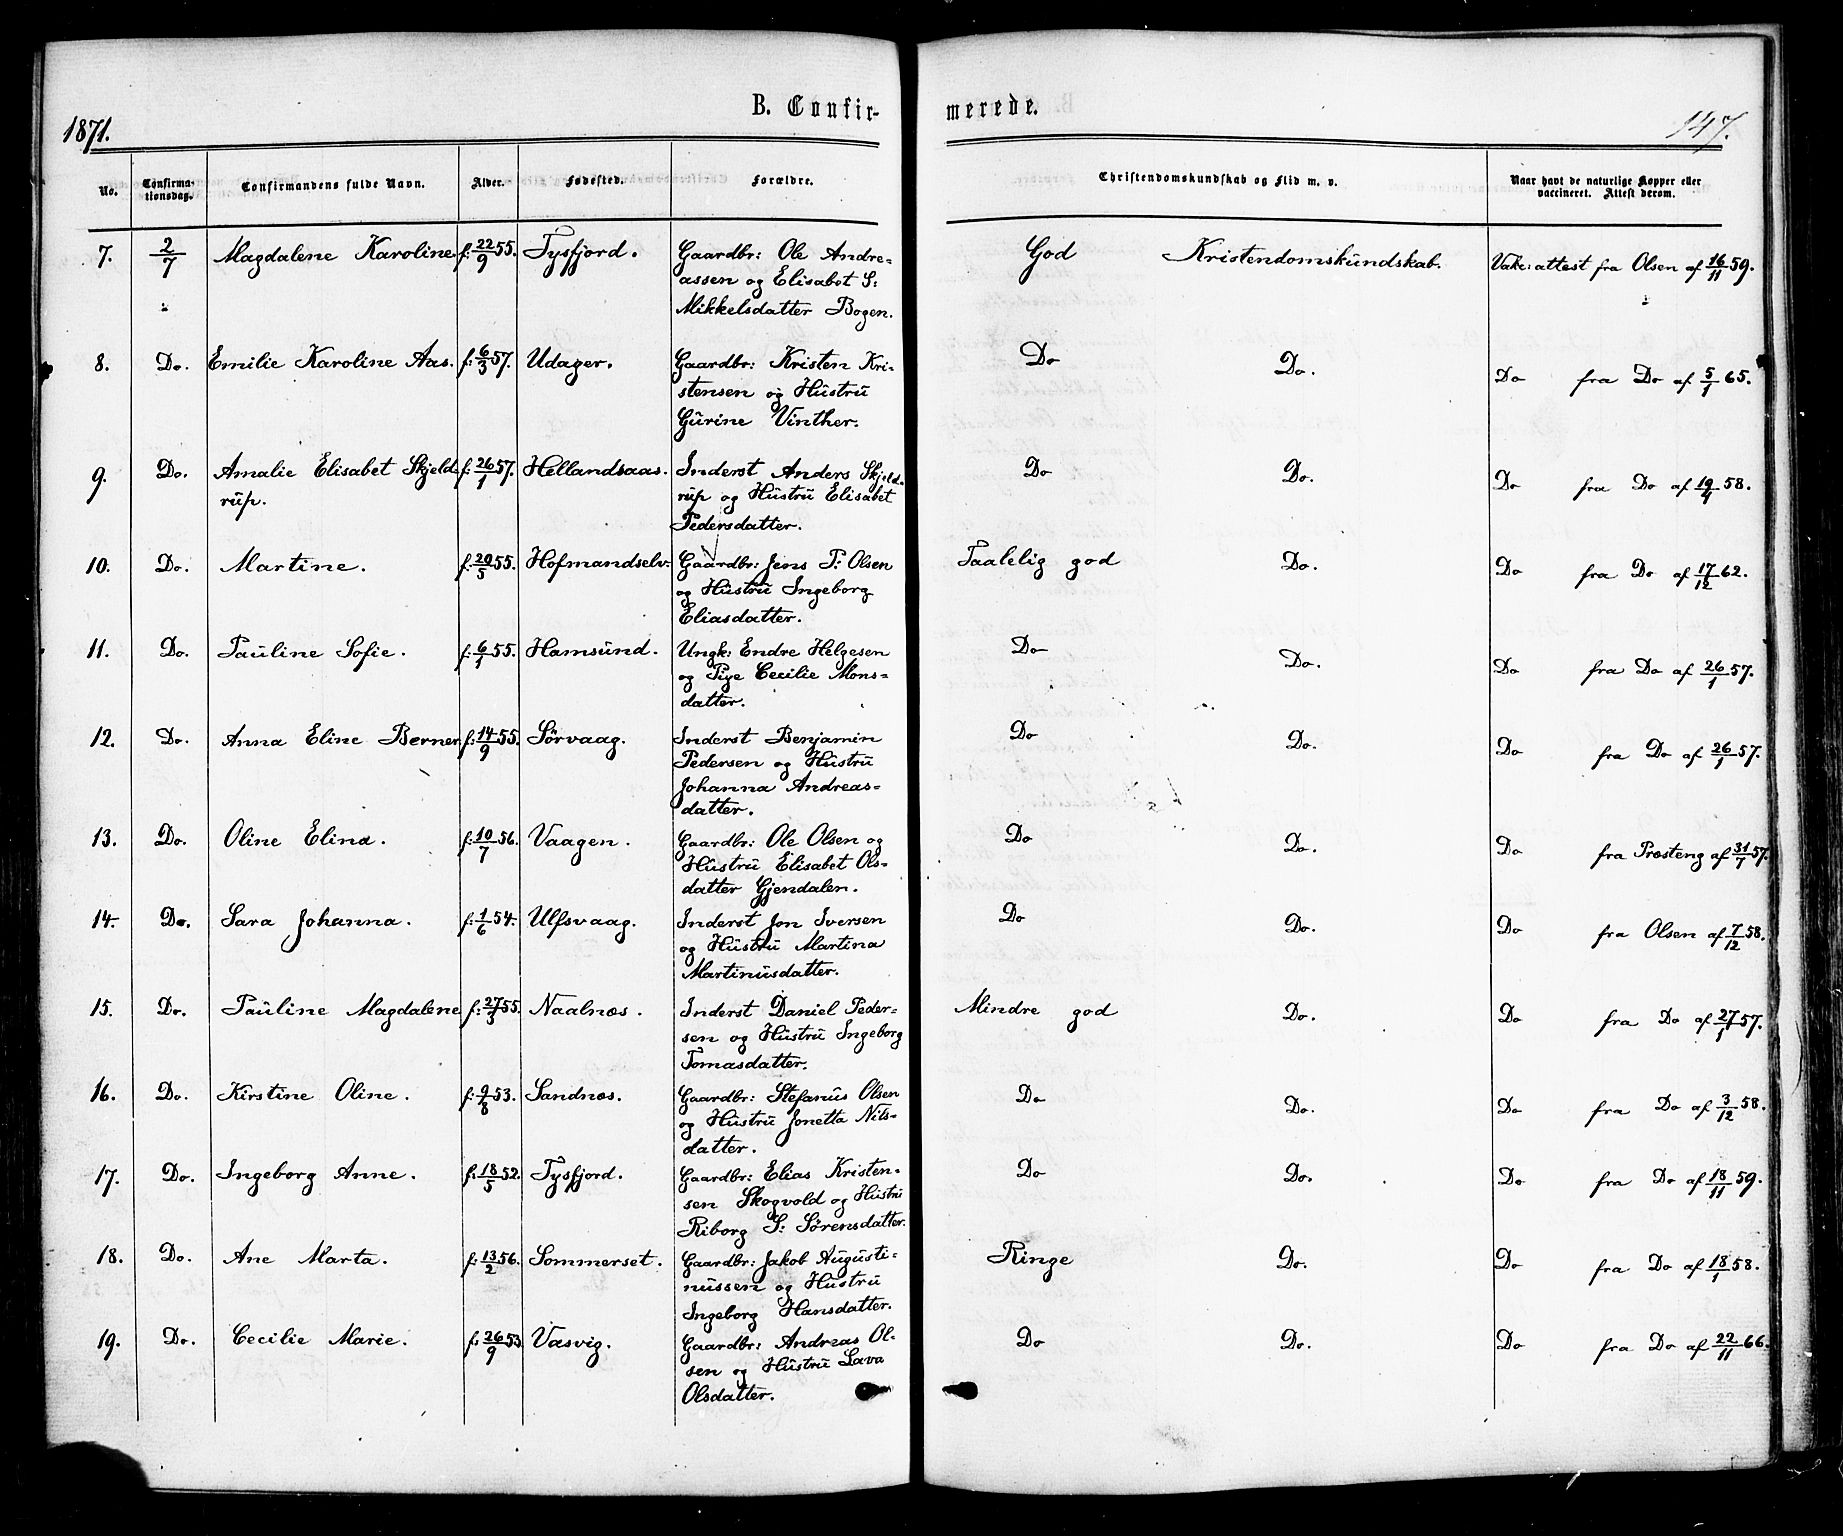 B. Confir-
merede.
1871.
147.
No.
Confirma-
tionsdag.
Confirmandens fulde Navn.
Alder.
Fødested.
Forældre.
Christendomskundskab og Flid m. v.
Naar havt de naturlige Kopper eller
vaccineret. Attest derom.
7. 2/7 Magdalene Karoline f: 22/9 55. Tysfjord. Gaardbr: Ole Andre-
assen og Elisabet S:
Mikkelsdatter Bogen.
God Kristendomskundskab. Vakc: attest fra Olsen af 16/11 59.
8. Do. Emilie Karoline Aas. f: 6/3 57. Udager. Gaardbr: Kristen Kri-
stensen og Hustru
Gurine Vinther.
Do Do. Do fra Do af 5/1 65.
9. Do. Amalie Elisabet Skjeld-
rup.
f: 26/1 57. Hellandsaas. Inderst Anders Skjeld-
rup og Hustru Elisabet
Pedersdatter.
Do Do. Do fra Do af 19/4 58.
10. Do. Martine. f: 20/5 55. Hofmandselv. Gaardbr: Jens P: Olsen
og Hustru Ingeborg
Eliasdatter.
Taalelig god Do. Do fra Do af 17/12 62.
11. Do. Pauline Sofie. f: 6/1 55. Hamsund. Ungk: Endre Helgesen
og Pige Cecilie Mons-
datter.
Do Do. Do fra Do af 26/1 57.
12. Do. Anna Eline Berner f: 14/9 55. Sørvaag. Inderst Benjamin
Pedersen og Hustru
Johanna Andreas-
datter.
Do Do. Do fra Do af 26/1 57.
13. Do. Oline Elina. f: 10/7 56. Vaagen. Gaardbr: Ole Olsen og
Hustru Elisabet Ols-
datter Gjendalen.
Do Do. Do fra Præsteng af 31/7 57.
14. Do. Sara Johanna. f: 1/6 54. Ulfsvaag. Inderst Jon Iversen
og Hustru Martina
Martinusdatter.
Do Do. Do fra Olsen af 7/12 58.
15. Do. Pauline Magdalene f: 27/3 55. Naalnæs. Inderst Daniel Peder-
sen og Hustru Ingeborg
Tomasdatter.
Mindre god Do. Do fra Do af 27/1 57.
16. Do. Kirstine Oline. f: 9/8 53. Sandnæs. Gaardbr: Stefanus Olsen
og Hustru Jonetta Nils-
datter.
Do Do. Do fra Do af 3/12 58.
17. Do. Ingeborg Anne. f: 18/5 52. Tysfjord. Gaardbr: Elias Kristen-
sen Skogvold og Hustru
Riborg S: Sørensdatter.
Do Do. Do fra Do af 18/11 59.
18. Do. Ane Marta. f: 13/2 56. Sommerset. Gaardbr: Jakob Augusti-
nussen og Hustru
Ingeborg Hansdatter.
Ringe Do. Do fra Do af 18/1 58.
19. Do. Cecilie Marie. f: 26/9 53 Vasvig. Gaardbr: Andreas Ol-
sen og Hustru Lava
Olsdatter.
Do Do. Do fra Do af 22/11 66.